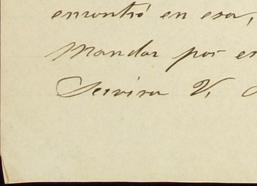 encontró en esa,
Mandar por es
Servira V.